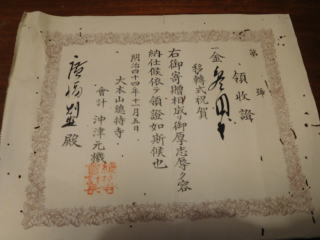 第 號
領收證
一金參圓也
移轉式祝賀
右御寄贈相成リ御厚志辱ク容
納仕候依テ領證如斯候也
明治四十四年十一月五日
大本山總持寺
會計 沖津元機
殿